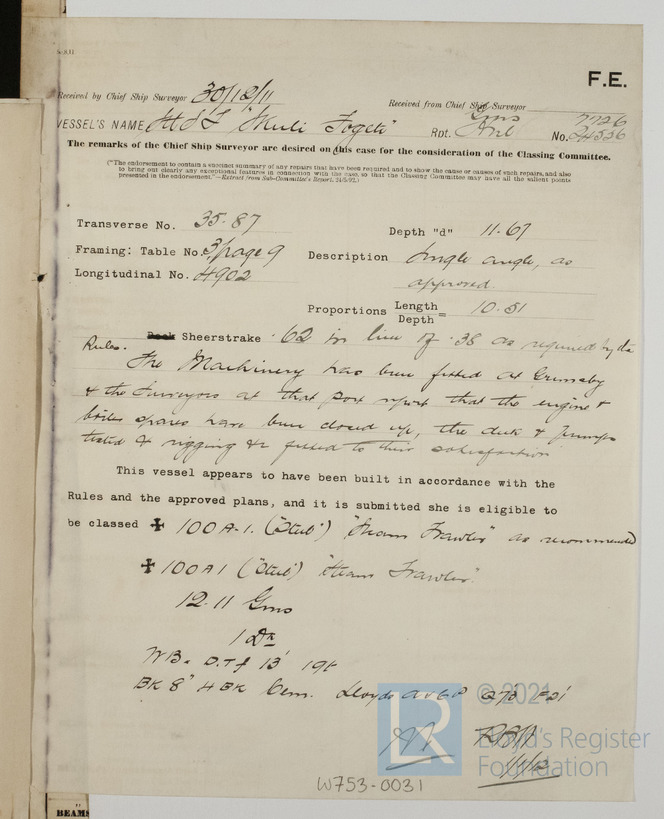 F.E.
Received by Chief Ship Surveyor 30/12/11
Received from Chief Ship Surveyor
VESSEL'S NAME "Skuli Fogeti" Rpt. Gms 7726
No. 24556
The remarks of the Chief Ship Surveyor are desired on this case for the consideration of the Classing Committee.
("The endorsement to contain a succinct summary of any repairs that have been required and to show the cause or causes of such repairs, and also
to bring out clearly any exceptional features in connection with the case, so that the Classing Committee may have all the salient points
presented in the endorsement."—Extract from Sub-Committee's Report, 24/5/92.)
Transverse No. 35.87
Depth "d" 11.67
Framing: Table No. 3, page 9
Description Single angle, as
approved.
Longitudinal No. 4902
Proportions Length
Depth = 10.51
Sheerstrake .62 in lieu of .38 as required by the
Rules.
The Machinery has been fitted at Grimsby
& the Surveyors at that port report that the engine &
boiler spaces have been closed up, the deck & pumps
tested & rigging &c fitted to their satisfaction
This vessel appears to have been built in accordance with the
Rules and the approved plans, and it is submitted she is eligible to
be classed ✠ 100A-1. ("Steel") "Steam Trawler" as recommended
✠ 100A1 ("Steel") "Steam Trawler".
12.11 Gms
1 Dk
WB = D.T f 13' 19t
BK 8" 4 BK Cem. Lloyds A & CP F21'
© 2021
LR
Lloyd's Register
Foundation
1/1/12
W753-0031
BEAMS